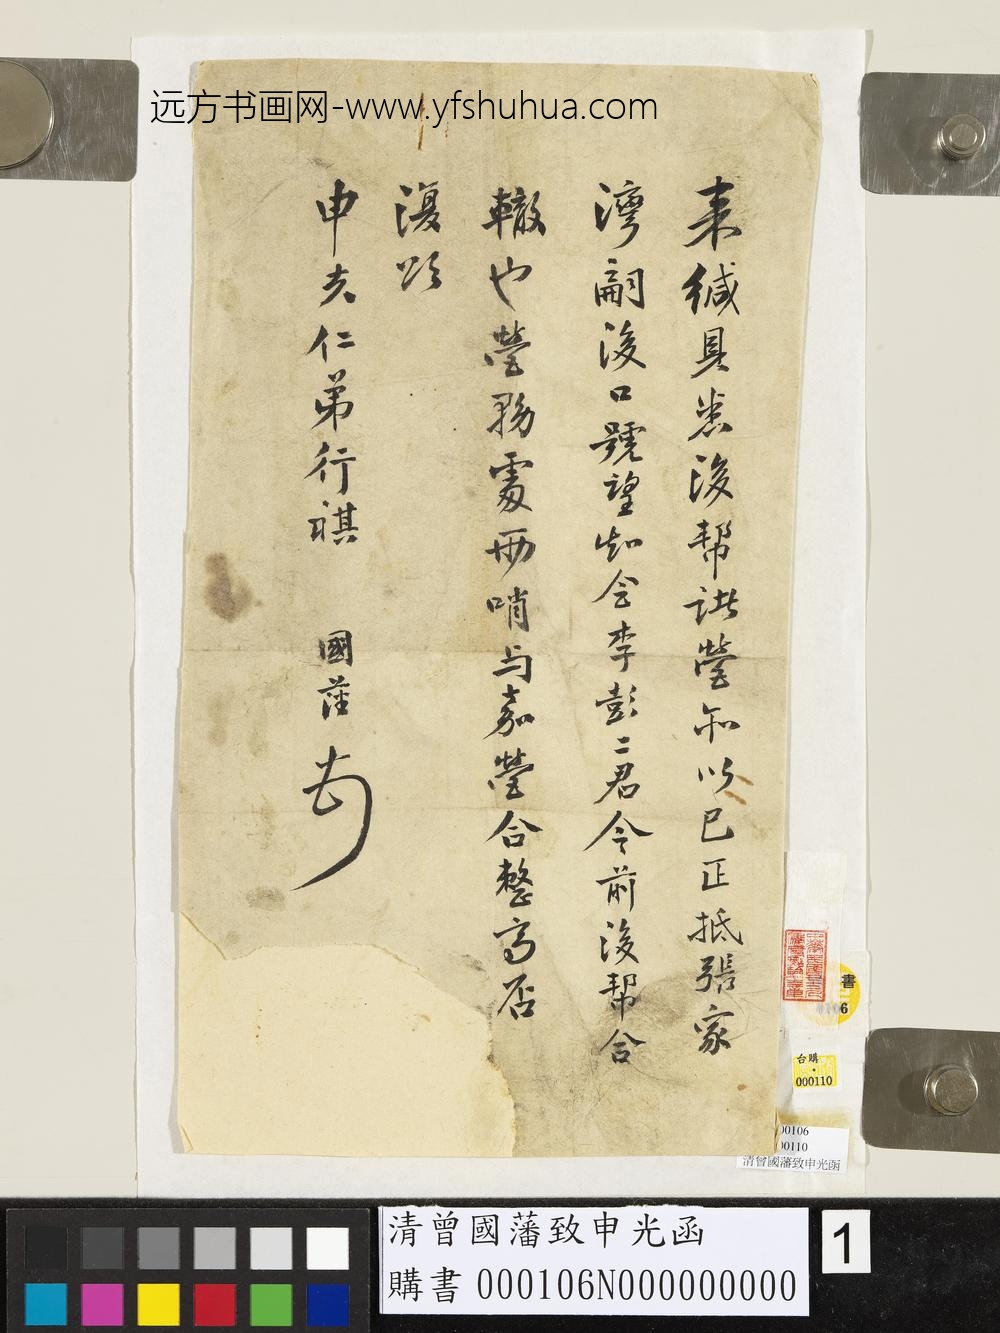 远方书画网-www.yfshuhua.com
來緘具悉後幫諸營知以巳正抵張家
灣嗣後口號望知會李彭二君令前後幫合
轍也營務處兩哨与嘉營合整高否
復頌
申夫仁弟行祺 國藩
書
106
台購
000110
00106
00110
清曾國藩致申光函
清曾國藩致申光函
購書 000106N000000000
1